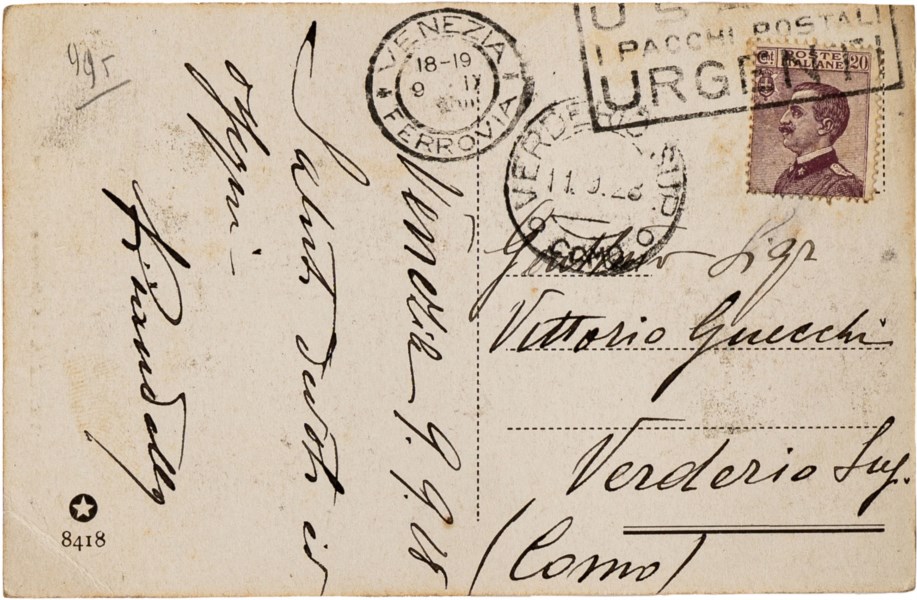 995
VENEZIA
18-19
9 IX
FERROVIA
USATE
I PACCHI POSTALI
URGENTI
POSTE ITALIANE
Cent 20
VERDERIO SUP
11.9.28
COMO
Venezia 9.9.28
Saluti devoti ed
ossequi
Sigr
Vittorio Gnecchi
Verderio Sup.
(Como)
8418